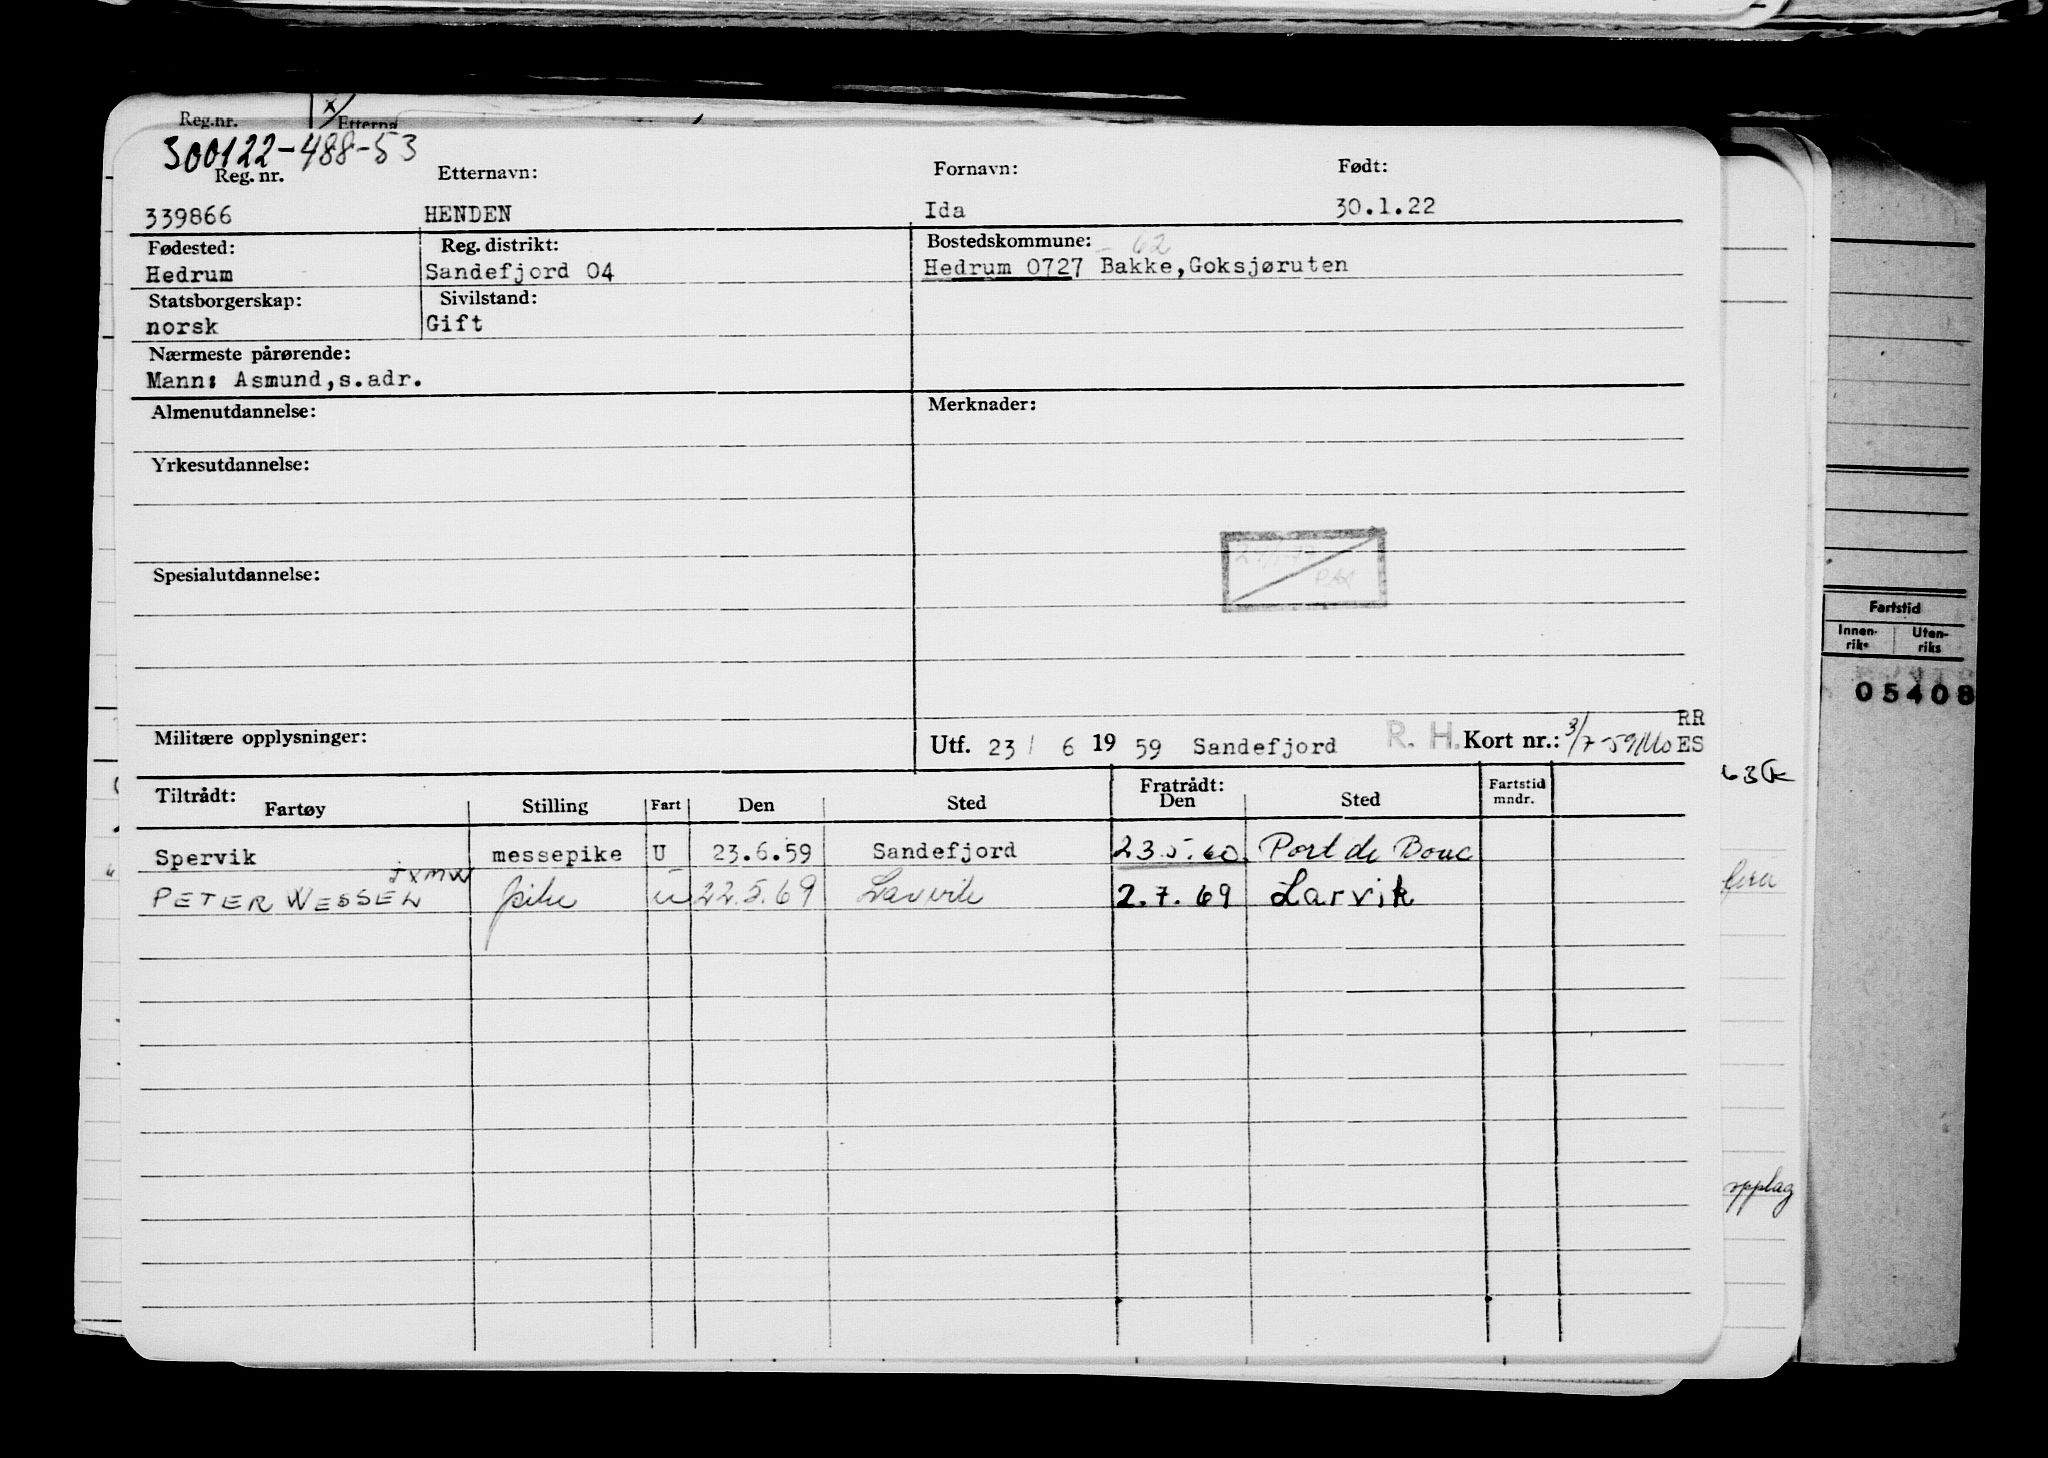 Reg.nr. x/ Etterna
300122-488-53
Reg. nr. Etternavn: Fornavn: Født:
339866 HENDEN Ida 30.1.22
Fødested: Reg. distrikt: Bostedskommune: - 62
Hedrum Sandefjord 04 Hedrum 0727 Bakke,Goksjøruten
Statsborgerskap: Sivilstand:
norsk Gift
Nærmeste pårørende:
Mann: Asmund,s.adr.
Almenutdannelse: Merknader:
Yrkesutdannelse:
Spesialutdannelse:
Militære opplysninger: Utf. 23/ 6 19 59 Sandefjord R. H. Kort nr.: 3/7-59 RR
ES
Tiltrådt: Fratrådt:
Fartøy Stilling Fart Den Sted Den Sted Fartstid mndr.
Spervik messepike U 23.6.59 Sandefjord 23.5.60 Port de Bouc
JXMW
PETER WESSEL pike U 22.5.69 Larvik 2.7.69 Larvik
Fartstid
Innen-riks Uten-riks
05408
opplag